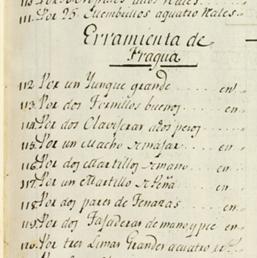 111. Por 25. Cuembillos aquatro Rales
Erramienta de
Fragua
112. Por un Yunque grande en
113. Por dos Tornillos buenos en
114. Por dos Claviseras ados pesos
115. Por un Macho
116. Por dos Martillos de mano en
117. Por un Martillo de Peña en
118. Por dos pares de Tenazas en
119. Por dos Tajaderas de mano y pie en
120. Por tres Limas Grandes aquatro